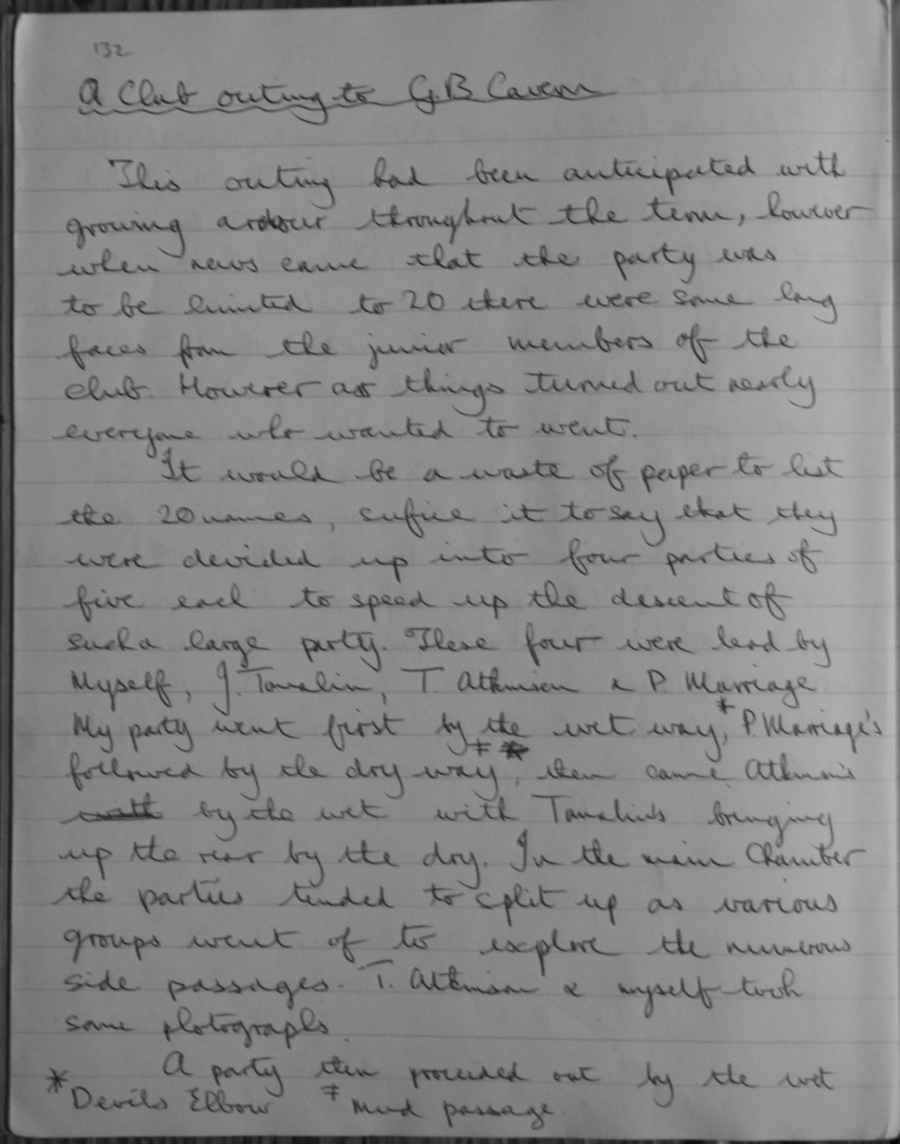 132
A Club outing to GB Cavern
This outing had been anticipated with
growing ardour throughout the term, however
when news came that the party was
to be limited to 20 there were some long
faces from the junior members of the
club. However as things turned out nearly
everyone who wanted to went.
It would be a waste of paper to list
the 20 names, sufice it to say that they
were devided up into four parties of
five each to speed up the descent of
such a large party. These four were lead by
Myself, J. Tomalin, T Atkinson & P. Marriage
My party went first by the wet way,* P Marriage's
followed by the dry way ‡, then came Atkinson's
by the wet with Tomalin's bringing
up the rear by the dry. In the main Chamber
the parties tended to split up as various
groups went of to explore the numerous
side passages. T. Atkinson & myself took
some photographs.
A party then proceeded out by the wet
* Devils Elbow ‡ mud passage